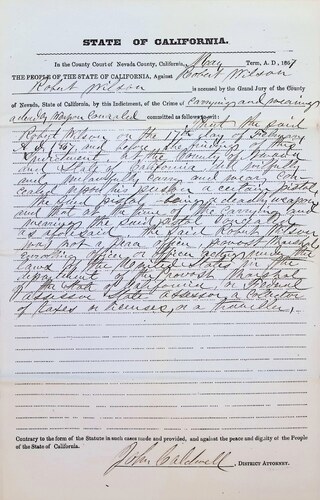 STATE OF CALIFORNIA.
In the County Court of Nevada County, California, May Term, A. D., 1867
THE PEOPLE OF THE STATE OF CALIFORNIA, Against Robert Wilson
Robert Wilson is accused by the Grand Jury of the County
of Nevada, State of California, by this Indictment, of the Crime of carrying and wearing
a deadly weapon Concealed committed as follows to wit:
That the said
Robert Wilson on the 17th day of February
A.D. 1867, and before the finding of this
Indictment, at the County of Nevada
and State of California
and unlawfully carry and wear con-
cealed upon his person a certain pistol
the said pistol being a deadly weapon
and that at the time of the carrying and
wearing the said pistol concealed
as aforesaid the said Robert Wilson
was not a peace officer, provost Marshal
enrolling officer, or officer acting under the
laws of the United States in the
department of the provost Marshal
of the State of California, or Federal
assessor State assessor, a collector
of taxes or licenses, or a traveller,
Contrary to the form of the Statute in such cases made and provided, and against the peace and dignity of the People
of the State of California.
John Caldwell, DISTRICT ATTORNEY.